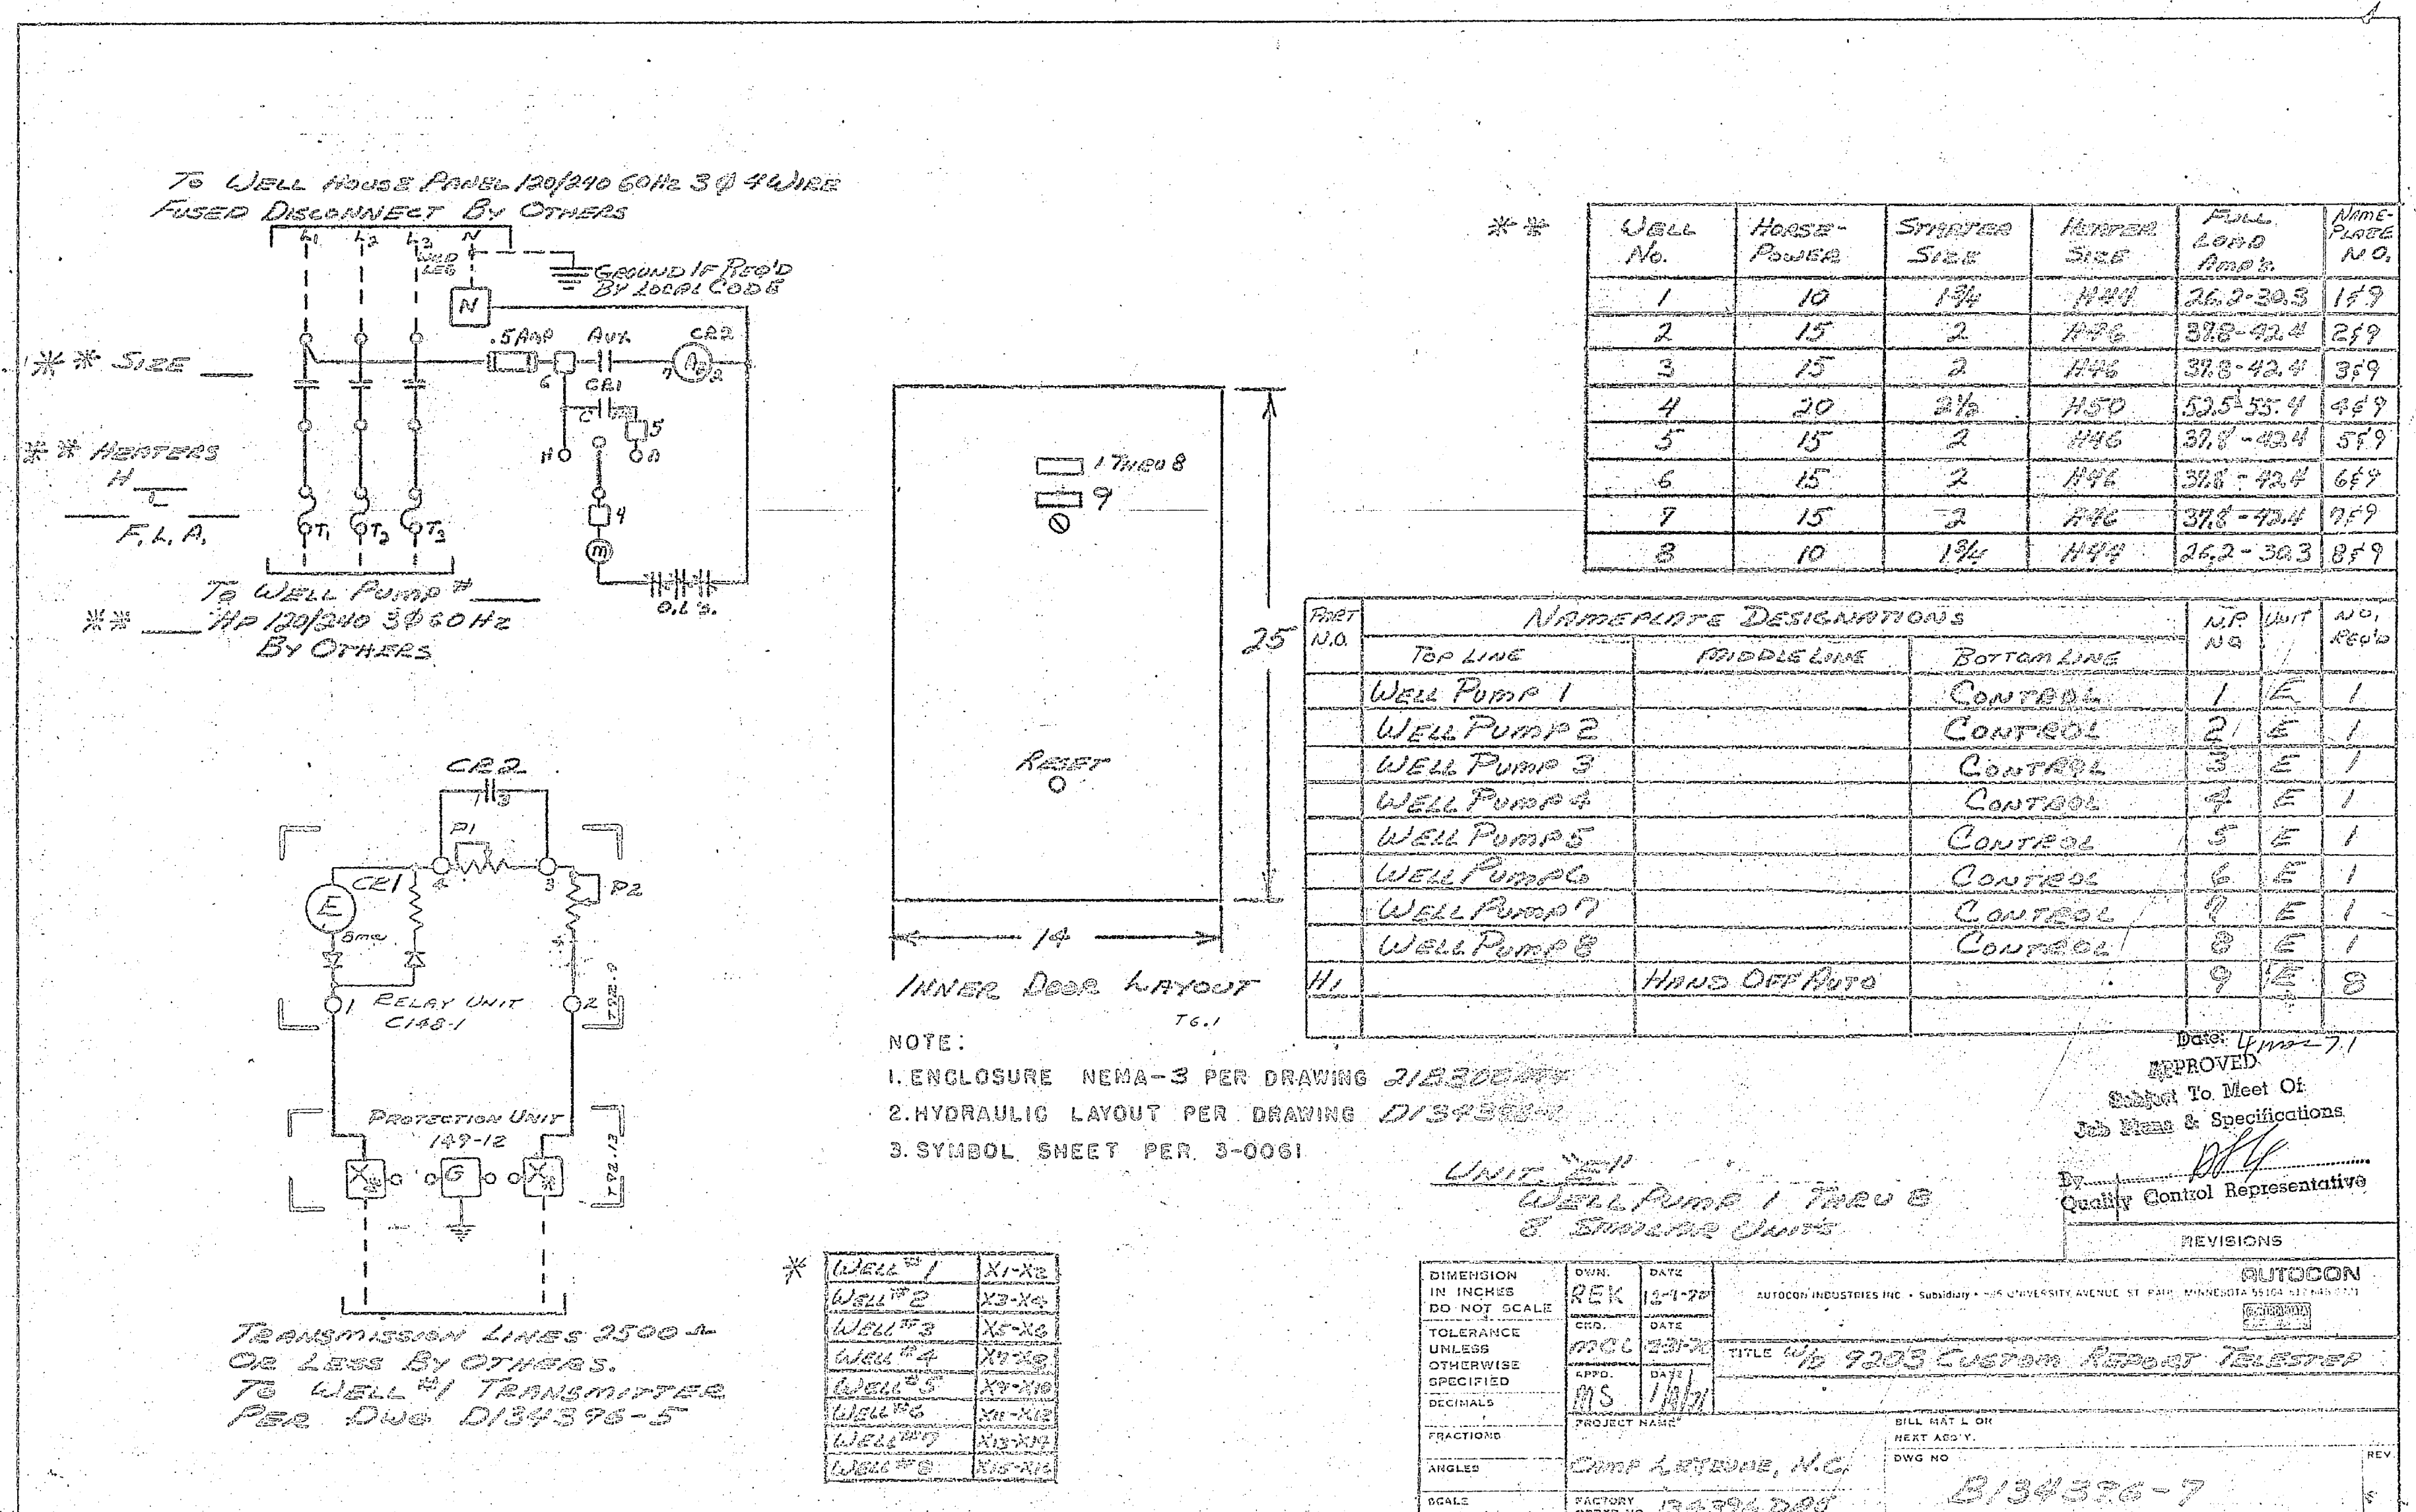 TO WELL HOUSE PANEL 120/240 60HZ 3Φ 4WIRE
FUSED DISCONNECT BY OTHERS
L1 L2 L3 N
WILD LEG
GROUND IF REQ'D
BY LOCAL CODE
N
.5 AMP AUX CR2
** SIZE
6 7
CR1
5
** HEATERS
H
H A
F.L.A.
T1 T2 T3
4
M
O.L'S.
TO WELL PUMP #
** HP 120/240 3Φ 60HZ
BY OTHERS
CR2
1 3
P1
CR1 3 P2
E
8ma
1 RELAY UNIT 2
C148-1
PROTECTION UNIT
149-12
X G X
TB2-13
TRANSMISSION LINES 2500 Ω
OR LESS BY OTHERS.
TO WELL #1 TRANSMITTER
PER DWG D134396-5
1 THRU 8
9
RESET
25
14
INNER DOOR LAYOUT
T6.1
NOTE:
1. ENCLOSURE NEMA-3 PER DRAWING
2. HYDRAULIC LAYOUT PER DRAWING
3. SYMBOL SHEET PER 3-0061
*
WELL #1 X1-X2
WELL #2 X3-X4
WELL #3 X5-X6
WELL #4 X7-X8
WELL #5 X9-X10
WELL #6 X11-X12
WELL #7 X13-X14
WELL #8 X15-X16
**
WELL NO. HORSE-POWER STARTER SIZE HEATER SIZE FULL LOAD AMP'S. NAME-PLATE NO.
1 10 1¾ H44 26.2-30.3 1&9
2 15 2 H46 37.8-42.4 2&9
3 15 2 H46 37.8-42.4 3&9
4 20 2½ H50 52.5-55.4 4&9
5 15 2 H46 37.8-42.4 5&9
6 15 2 H46 37.8-42.4 6&9
7 15 2 H46 37.8-42.4 7&9
8 10 1¾ H44 26.2-30.3 8&9
PART NO. NAMEPLATE DESIGNATIONS N.P. NO UNIT NO. REQ'D
TOP LINE MIDDLE LINE BOTTOM LINE
WELL PUMP 1 CONTROL 1 E 1
WELL PUMP 2 CONTROL 2 E 1
WELL PUMP 3 CONTROL 3 E 1
WELL PUMP 4 CONTROL 4 E 1
WELL PUMP 5 CONTROL 5 E 1
WELL PUMP 6 CONTROL 6 E 1
WELL PUMP 7 CONTROL 7 E 1
WELL PUMP 8 CONTROL 8 E 1
H1 HAND OFF AUTO 9 E 8
Date: 4 Mar 71
APPROVED
Subject To Meet Of
Job Plans & Specifications
By
Quality Control Representative
UNIT "E"
WELL PUMP 1 THRU 8
8 SIMILAR UNITS
REVISIONS
DIMENSION
IN INCHES
DO NOT SCALE
TOLERANCE
UNLESS
OTHERWISE
SPECIFIED
DECIMALS
FRACTIONS
ANGLES
SCALE
DWN. DATE
REK
CKD. DATE
MCL
APPD. DATE
MS
AUTOCON
AUTOCON INDUSTRIES INC • Subsidiary • UNIVERSITY AVENUE ST. PAUL, MINNESOTA 55104
TITLE W/D 9203 CUSTOM REPORT TELESTEP
PROJECT NAME
CAMP LEJEUNE, N.C.
BILL MAT'L OR
NEXT ASS'Y.
DWG NO
B134396-7
REV
FACTORY